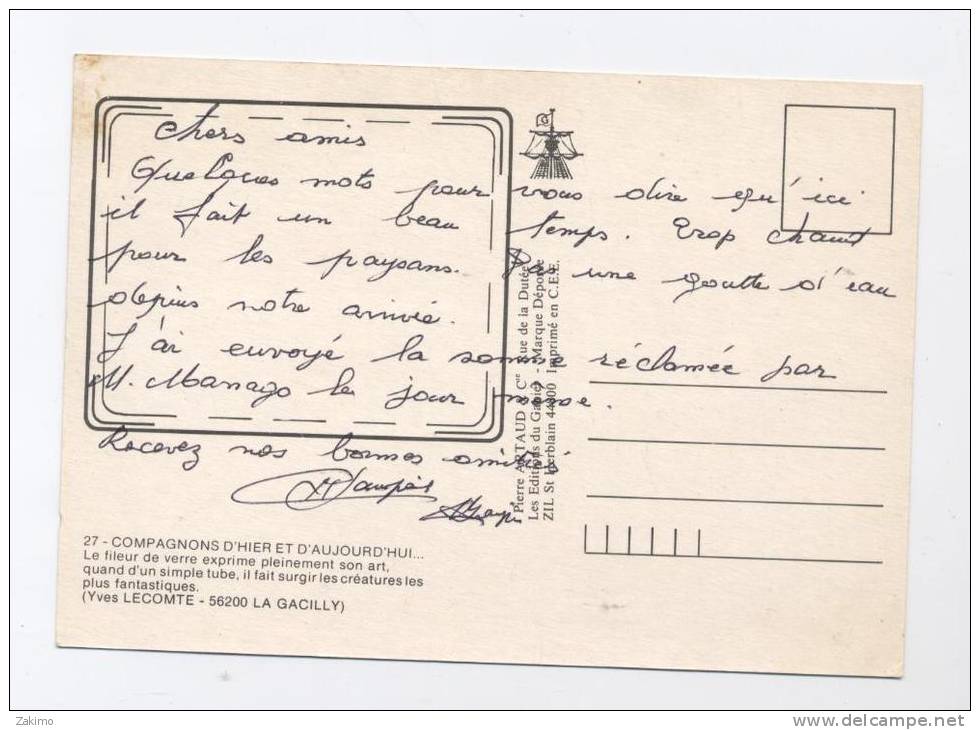 Chers amis
Quelques mots pour vous dire qu'ici
il fait un beau temps. Trop chaud
pour les paysans. Pas une goutte d'eau
depuis notre arrivée.
J'ai envoyé la somme réclamée par
M. Manago le jour même.
Recevez nos bonnes amitiés
G
Pierre ARTAUD & Cie Rue de la Dutée
Les Editions du Gabier - Marque Déposée
ZIL St Herblain 44800 Imprimé en C.E.E.
27 - COMPAGNONS D'HIER ET D'AUJOURD'HUI...
Le fileur de verre exprime pleinement son art,
quand d'un simple tube, il fait surgir les créatures les
plus fantastiques.
(Yves LECOMTE - 56200 LA GACILLY)
Zakimo
http://www.delcampe.net